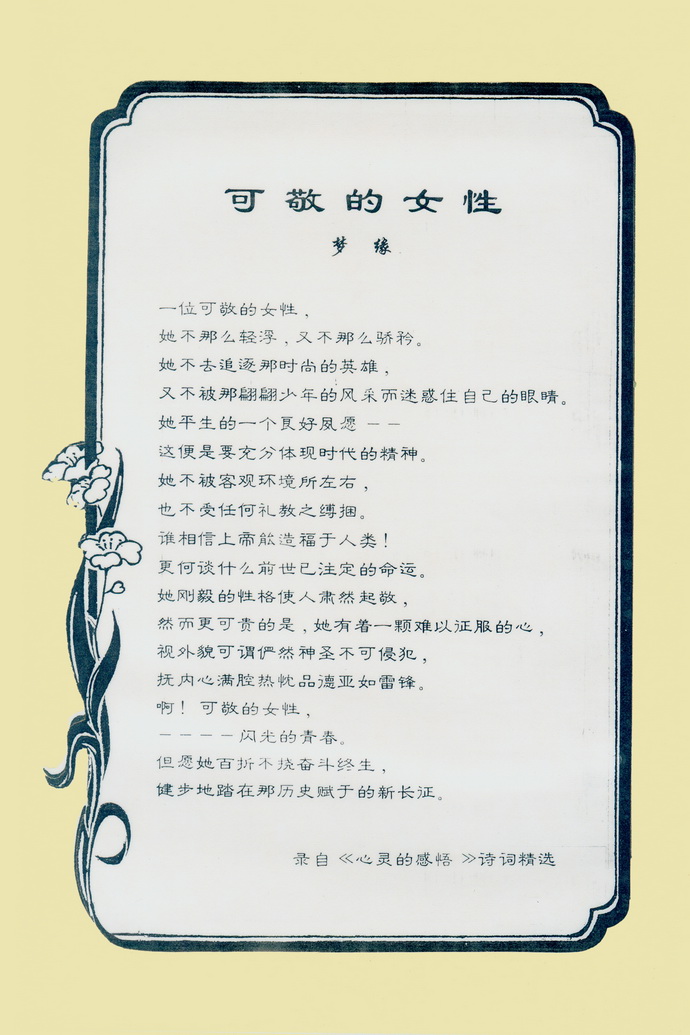 可敬的女性
梦缘
一位可敬的女性，
她不那么轻浮，又不那么骄矜。
她不去追逐那时尚的英雄，
又不被那翩翩少年的风采而迷惑住自己的眼睛。
她平生的一个良好夙愿——
这便是要充分体现时代的精神。
她不被客观环境所左右，
也不受任何礼教之缚捆。
谁相信上帝能造福于人类！
更何谈什么前世已注定的命运。
她刚毅的性格使人肃然起敬，
然而更可贵的是，她有着一颗难以征服的心，
视外貌可谓俨然神圣不可侵犯，
抚内心满腔热忱品德亚如雷锋。
啊！可敬的女性，
————闪光的青春。
但愿她百折不挠奋斗终生，
健步地踏在那历史赋于的新长征。
录自《心灵的感悟》诗词精选